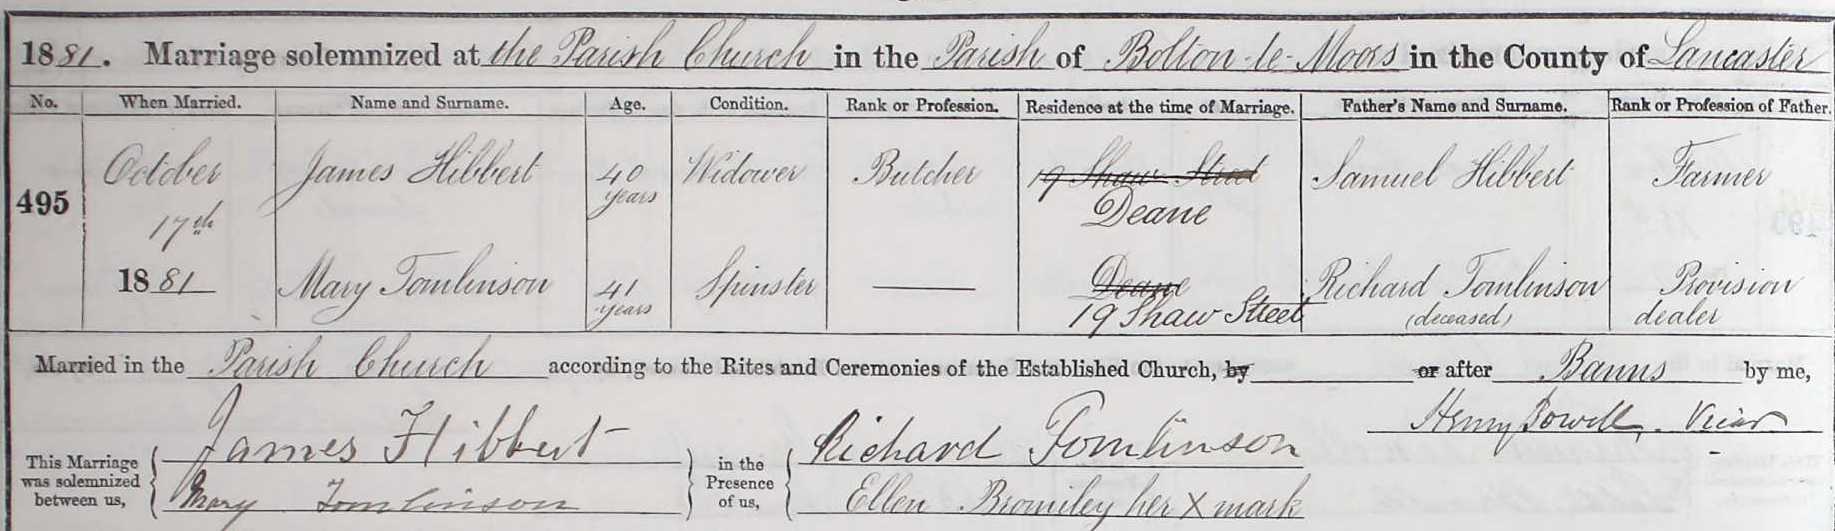 1881. Marriage solemnized at the Parish Church in the Parish of Bolton-le-Moors in the County of Lancaster
No. When Married. Name and Surname. Age. Condition. Rank or Profession. Residence at the time of Marriage. Father's Name and Surname. Rank or Profession of Father.
495 October 17th 1881 James Hibbert 40 years Widower Butcher 19 Shaw Street Deane Samuel Hibbert Farmer
Mary Tomlinson 41 years Spinster Deane 19 Shaw Street Richard Tomlinson (deceased) Provision dealer
Married in the Parish Church according to the Rites and Ceremonies of the Established Church, by or after Banns by me,
Henry Powell, Vicar
This Marriage was solemnized between us, James Hibbert Mary Tomlinson in the Presence of us, Richard Tomlinson Ellen Bromiley her X mark